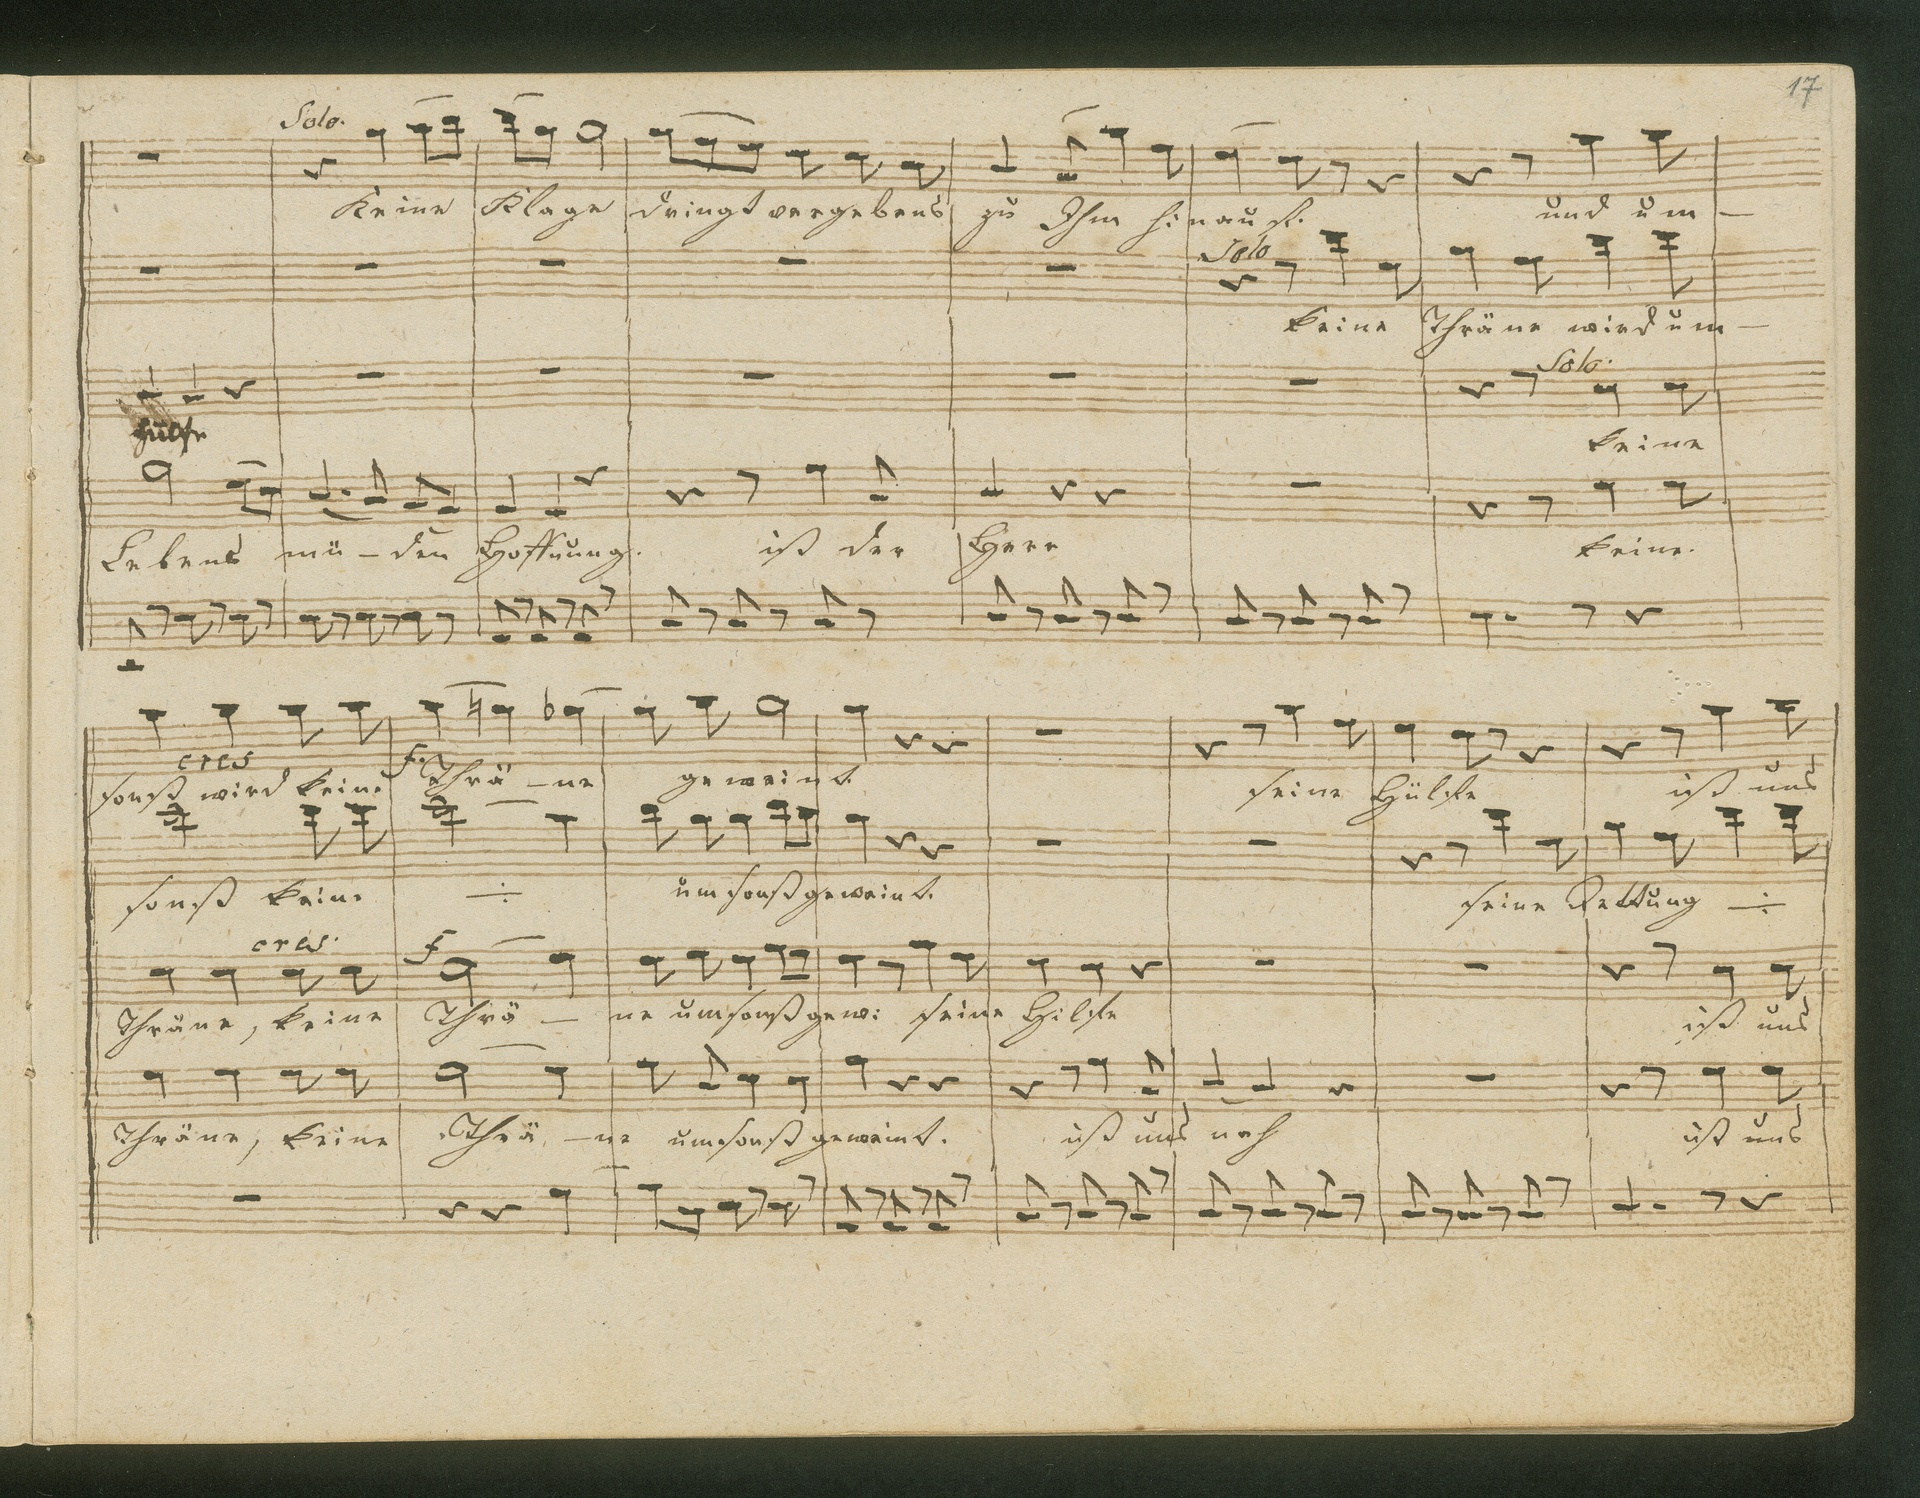 17
Solo.
Keine Klage dringt vergebens zu Ihm hinauf. und um —
Solo
keine Thräne wird um —
Solo.
Hülfe keine
Lebens mü – den Hoffnung. ist der Herr keine.
cres f.
sonst wird keine Thrä – ne geweint. seine Hülfe ist uns
sonst keine umsonst geweint. seine Rettung
cres. f
Thräne, keine Thrä – ne umsonst gew: seine Hilfe ist uns
Thräne, keine Thrä – ne umsonst geweint. ist uns nah ist uns